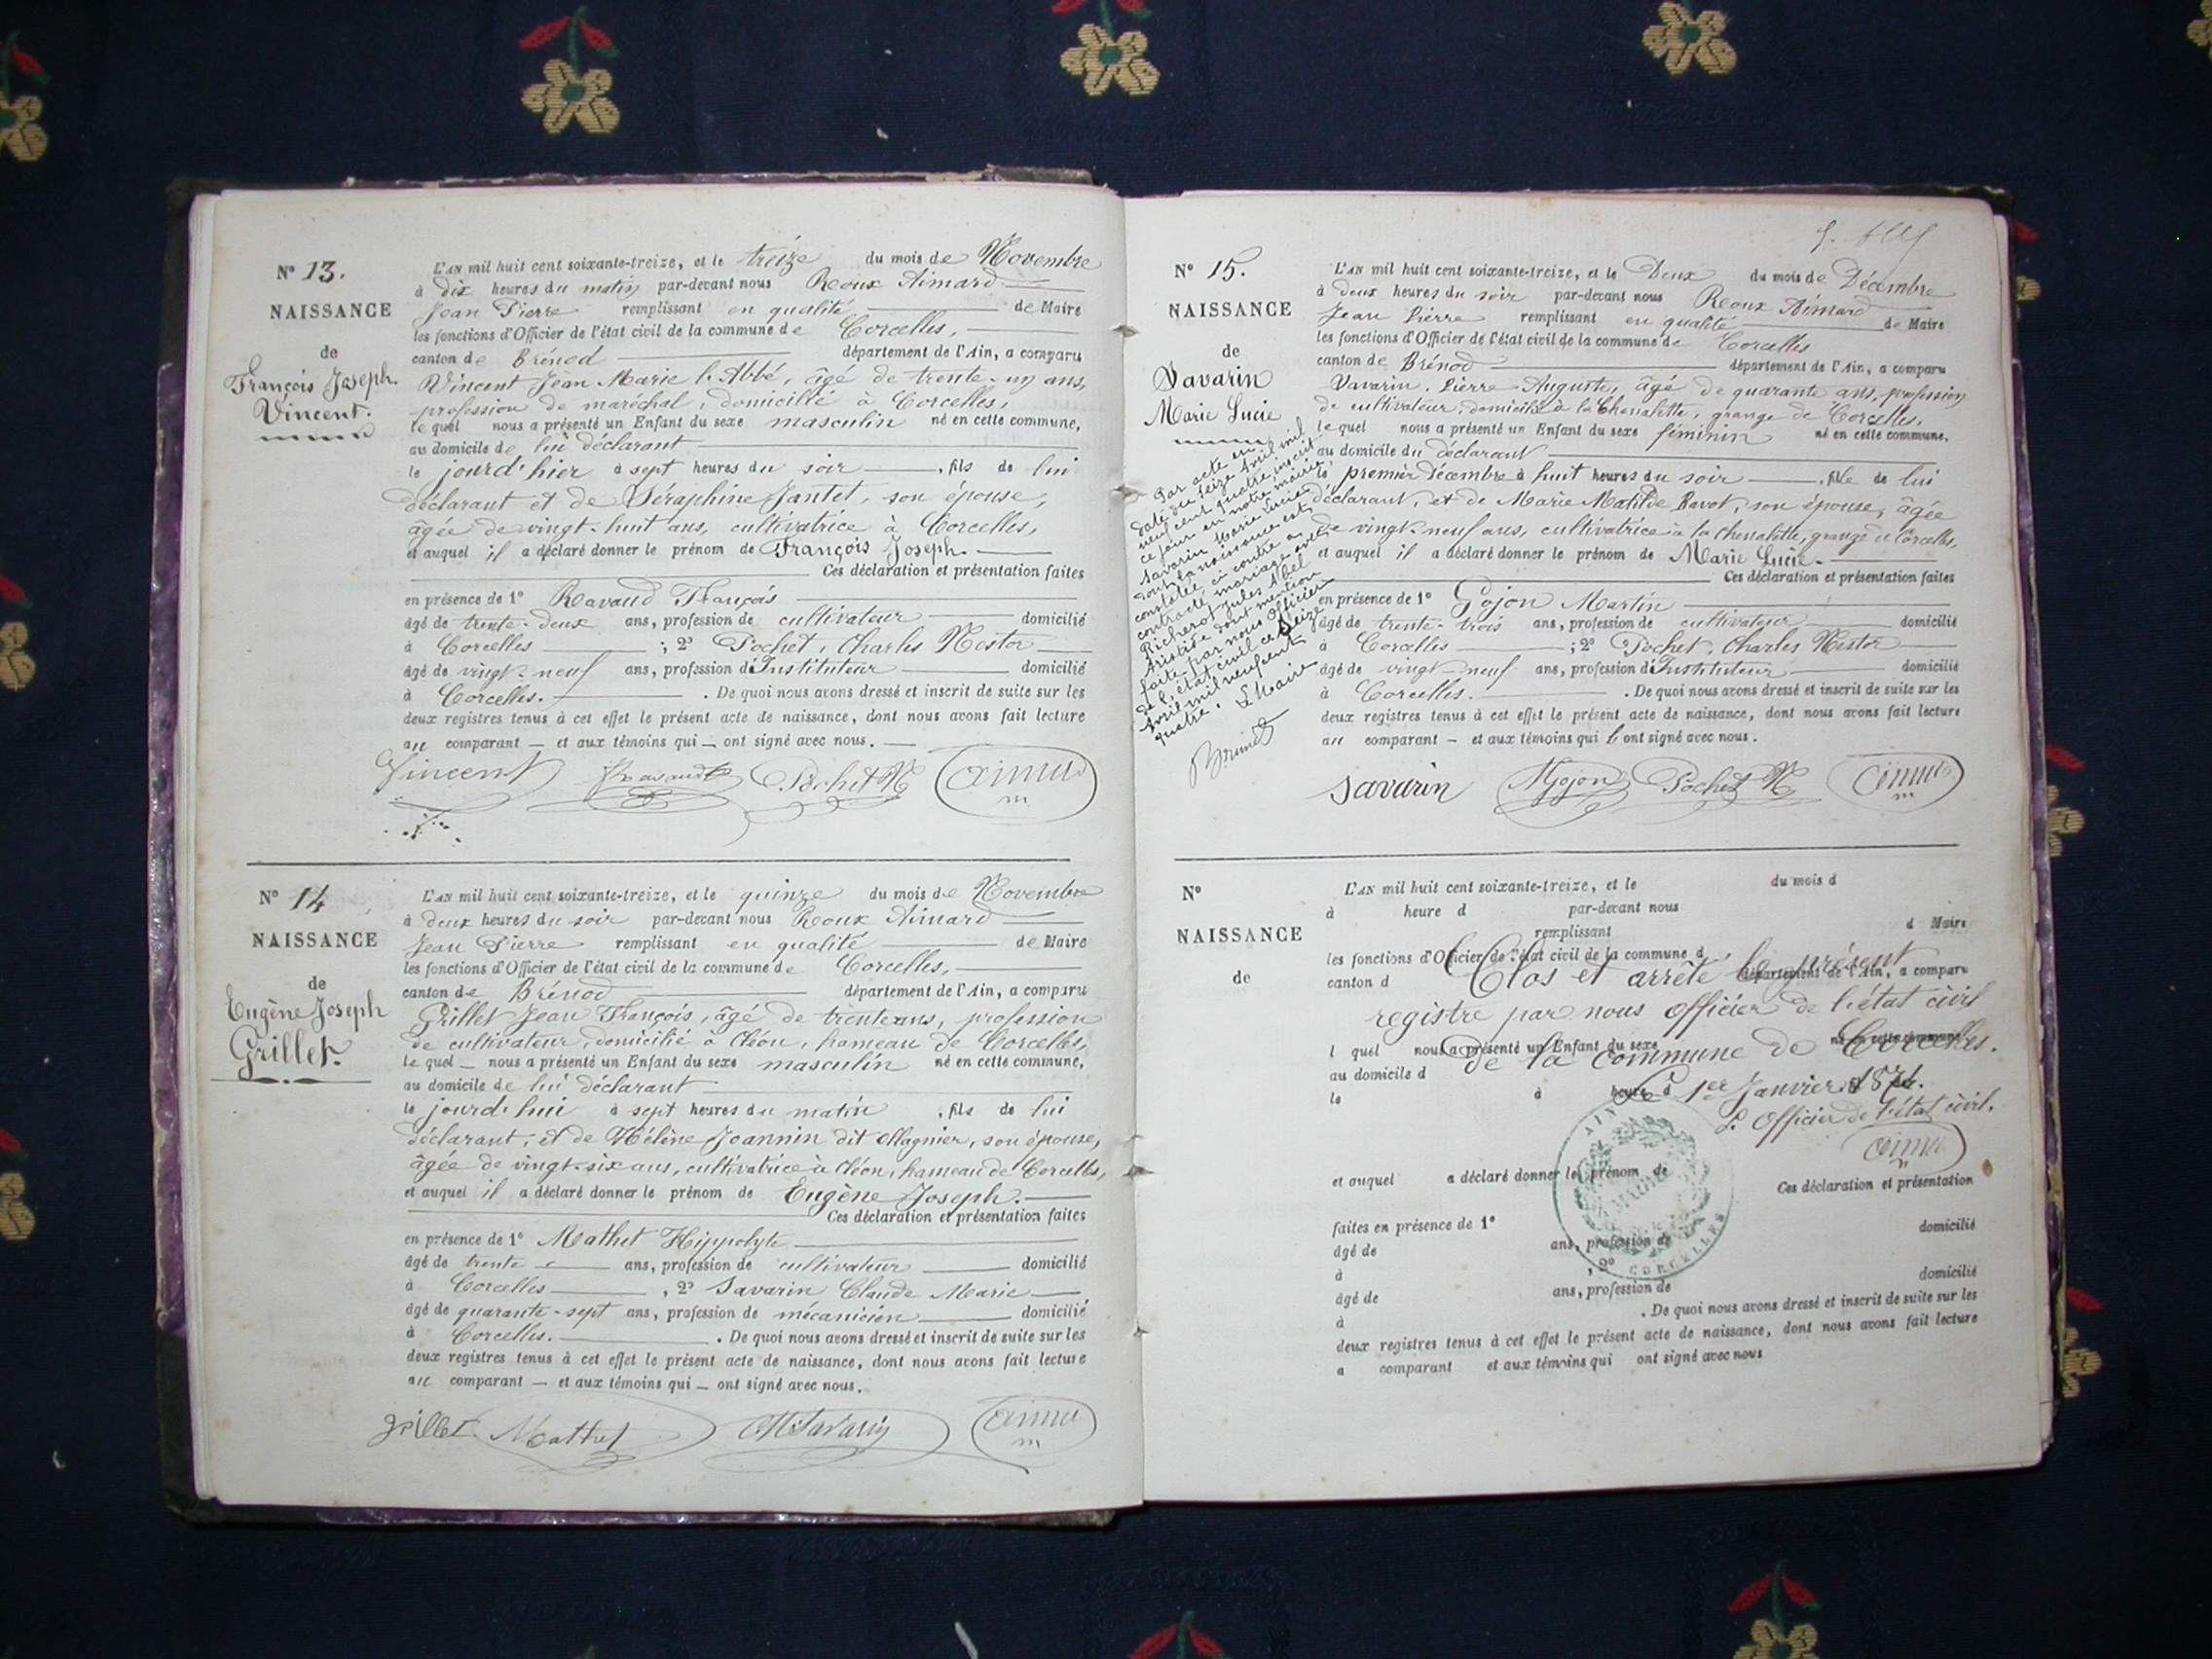 N° 13.
NAISSANCE
de
François Joseph
Vincent.
L'AN mil huit cent soixante-treize, et le treize du mois de Novembre
à dix heures du matin par-devant nous Roux Aimard
Jean Pierre remplissant en qualité de Maire
les fonctions d'Officier de l'état civil de la commune de Corcelles,
canton de Brénod département de l'Ain, a comparu
Vincent Jean Marie l'Abbé, âgé de trente-un ans,
profession de maréchal, domicilié à Corcelles,
lequel nous a présenté un Enfant du sexe masculin né en cette commune,
au domicile de lui déclarant
le jourd'hier à sept heures du soir, fils de lui
déclarant et de Séraphine Jantet, son épouse,
âgée de vingt-huit ans, cultivatrice à Corcelles,
et auquel il a déclaré donner le prénom de François Joseph.
Ces déclaration et présentation faites
en présence de 1° Ravaud François
âgé de trente-deux ans, profession de cultivateur domicilié
à Corcelles ; 2° Pochet, Charles Nestor
âgé de vingt-neuf ans, profession d'Instituteur domicilié
à Corcelles. . De quoi nous avons dressé et inscrit de suite sur les
deux registres tenus à cet effet le présent acte de naissance, dont nous avons fait lecture
au comparant — et aux témoins qui — ont signé avec nous.
Vincent Ravaud Pochet N
N° 14
NAISSANCE
de
Eugène Joseph
Grillet.
L'AN mil huit cent soixante-treize, et le quinze du mois de Novembre
à deux heures du soir par-devant nous Roux Aimard
Jean Pierre remplissant en qualité de Maire
les fonctions d'Officier de l'état civil de la commune de Corcelles,
canton de Brénod département de l'Ain, a comparu
Grillet Jean François, âgé de trente ans, profession
de cultivateur, domicilié à Cléon, hameau de Corcelles,
le quel — nous a présenté un Enfant du sexe masculin né en cette commune,
au domicile de lui déclarant
le jourd'hui à sept heures du matin, fils de lui
déclarant, et de Hélène Joannin dit Magnier, son épouse,
âgée de vingt-six ans, cultivatrice à Cléon, hameau de Corcelles,
et auquel il a déclaré donner le prénom de Eugène Joseph.
Ces déclaration et présentation faites
en présence de 1° Mathet Hippolyte
âgé de trente ans, profession de cultivateur domicilié
à Corcelles , 2° Savarin Claude Marie
âgé de quarante-sept ans, profession de mécanicien domicilié
à Corcelles. . De quoi nous avons dressé et inscrit de suite sur les
deux registres tenus à cet effet le présent acte de naissance, dont nous avons fait lecture
au comparant — et aux témoins qui — ont signé avec nous.
grillet Mathet Savarin
N° 15.
NAISSANCE
de
Savarin
Marie Lucie
Par acte en
date du seize Avril mil
neuf cent quatre, inscrit
ce jour en notre mairie,
Savarin Marie Lucie
dont la naissance est
constatée ci contre a
contracté mariage avec
Richerot Jules Abel
Aristide dont mention
faite par nous Officier
de l'état civil ce seize
Avril mil neuf cent
quatre. Le Maire
L'AN mil huit cent soixante-treize, et le Deux du mois de Décembre
à deux heures du soir par-devant nous Roux Aimard
Jean Pierre remplissant en qualité de Maire
les fonctions d'Officier de l'état civil de la commune de Corcelles
canton de Brénod département de l'Ain, a comparu
Savarin, Pierre Auguste, âgé de quarante ans, profession
de cultivateur, domicilié à la Chenalette, grange de Corcelles,
lequel nous a présenté un Enfant du sexe féminin né en cette commune,
au domicile du déclarant
le premier Décembre à huit heures du soir, fille de lui
déclarant, et de Marie Matilde Ravot, son épouse, âgée
de vingt-neuf ans, cultivatrice à la Chenalette, grange de Corcelles,
et auquel il a déclaré donner le prénom de Marie Lucie.
Ces déclaration et présentation faites
en présence de 1° Gojon Martin
âgé de trente-trois ans, profession de cultivateur domicilié
à Corcelles ; 2° Pochet, Charles Nestor
âgé de vingt-neuf ans, profession d'Instituteur domicilié
à Corcelles. . De quoi nous avons dressé et inscrit de suite sur les
deux registres tenus à cet effet le présent acte de naissance, dont nous avons fait lecture
au comparant — et aux témoins qui ont signé avec nous.
savarin Mgojon Pochet N
N°
NAISSANCE
de
L'AN mil huit cent soixante-treize, et le du mois d
à heure d par-devant nous
remplissant d Maire
les fonctions d'Officier de l'état civil de la commune d
canton d département de l'Ain, a comparu
Clos et arrêté le présent
registre par nous officier de l'état civil
l quel nous a présenté un Enfant du sexe né en cette commune
de la commune de Corcelles.
au domicile d
le à heure d
le 1er Janvier 1874.
L'Officier de l'état civil.
AIN
MAIRIE
CORCELLES
et auquel a déclaré donner le prénom de
Ces déclaration et présentation
faites en présence de 1° domicilié
âgé de ans, profession de
à , 2°
âgé de ans, profession de domicilié
à . De quoi nous avons dressé et inscrit de suite sur les
deux registres tenus à cet effet le présent acte de naissance, dont nous avons fait lecture
a comparant et aux témoins qui ont signé avec nous